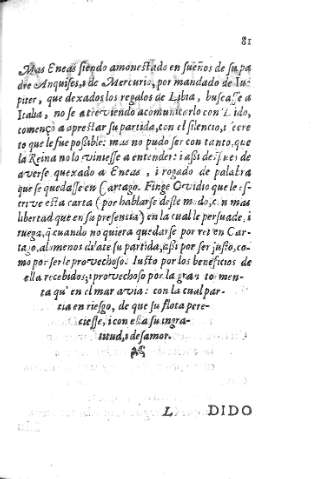 81
Mas Eneas siendo amonestado en sueños de su pa
dre Anquises, i de Mercurio, por mandado de Iu
piter, que dexados los regalos de Libia, buscasse a
Italia, no se atreviendo a comunicarlo con Dido,
començo a aprestar su partida, con el silencio, i secre
to que le fue posible: mas no pudo ser con tanto, que
la Reina no lo viniesse a entender: i assi despues de
averse quexado a Eneas, i rogado de palabra
que se quedasse en Cartago. Finge Ovidio que le es-
crive esta carta (por hablarse deste modo, con mas
libertad que en su presencia) en la cual le persuade, i
ruega, q̃ cuando no quiera quedarse por rei en Car-
tago, al menos dilate su partida, assi por ser justo, co-
mo por serle provechoso. Iusto por los beneficios de
ella recebidos; i provechoso por la gran tomen-
ta qu' en el mar avia: con la cual par-
tia en riesgo, de que su flota pere-
ciesse, i con ella su ingra-
titud, i desamor.
L DIDO